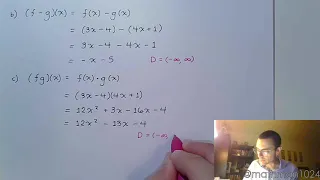 b) (f-g)(x) = f(x) - g(x)
= (3x-4) - (4x+1)
= 3x-4 - 4x-1
= -x-5 D = (-∞, ∞)
c) (fg)(x) = f(x)·g(x)
= (3x-4)(4x+1)
= 12x² + 3x - 16x - 4
= 12x² - 13x - 4
D = (-∞,
1024